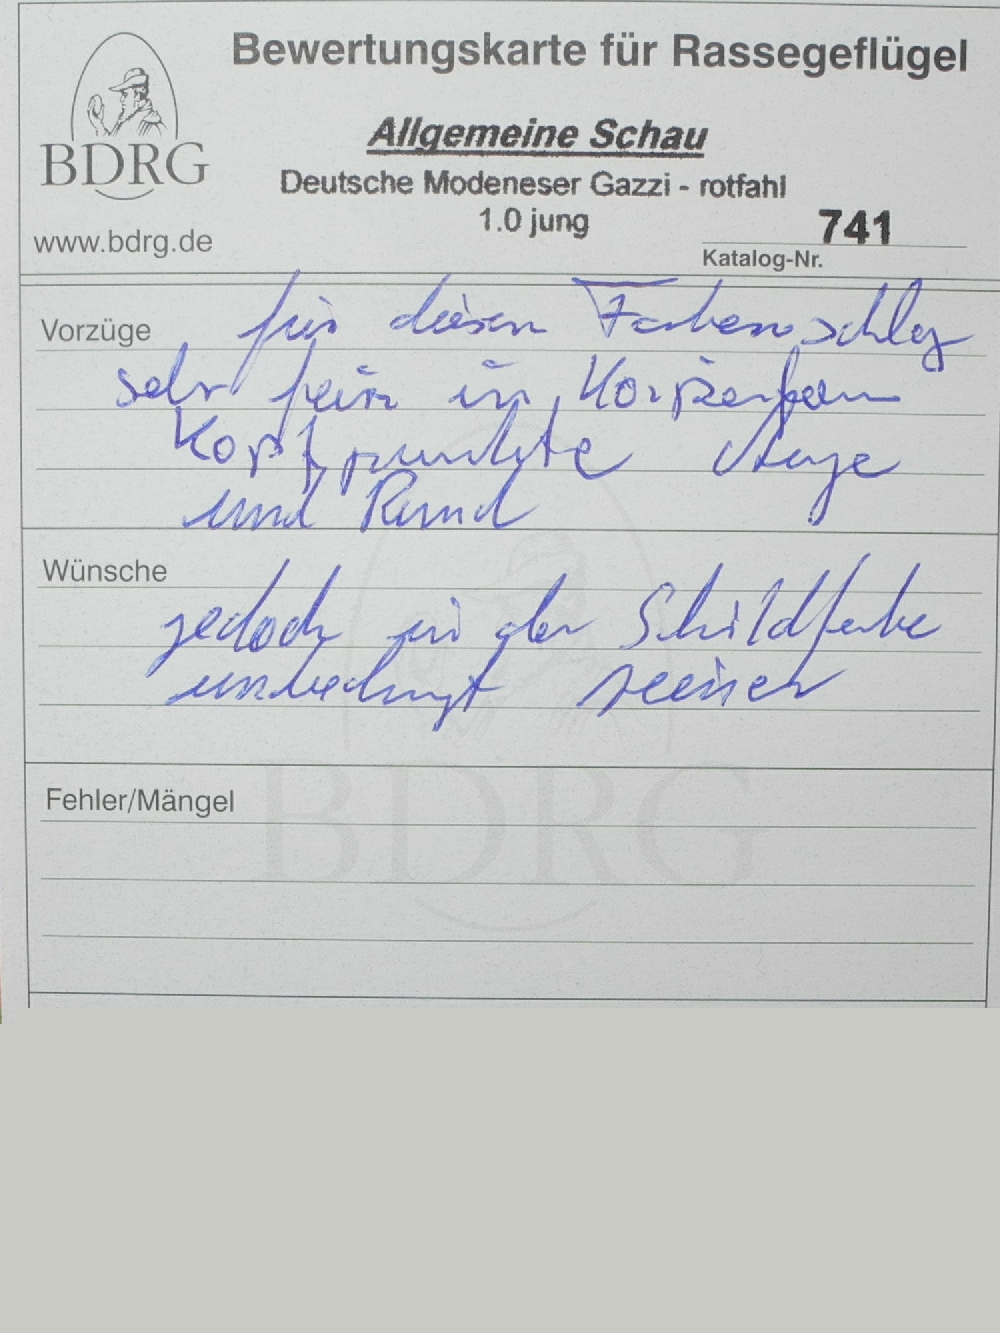 Bewertungskarte für Rassegeflügel
BDRG
www.bdrg.de
Allgemeine Schau
Deutsche Modeneser Gazzi - rotfahl
1.0 jung
741
Katalog-Nr.
Vorzüge
für diesen Farbenschlag
sehr fein in Körperform
Kopfpunkte Auge
und Rand
Wünsche
jedoch in der Schildfarbe
unbedingt reiner
Fehler/Mängel
BDRG